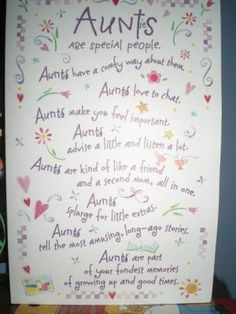 Aunts
are special people.
Aunts have a comfy way about them.
Aunts love to chat.
Aunts make you feel important.
Aunts
advise a little and listen a lot.
Aunts are kind of like a friend
and a second mom, all in one.
Aunts
splurge for little extras.
Aunts
tell the most amusing, long-ago stories.
Aunts are part
of your fondest memories
of growing up and good times.